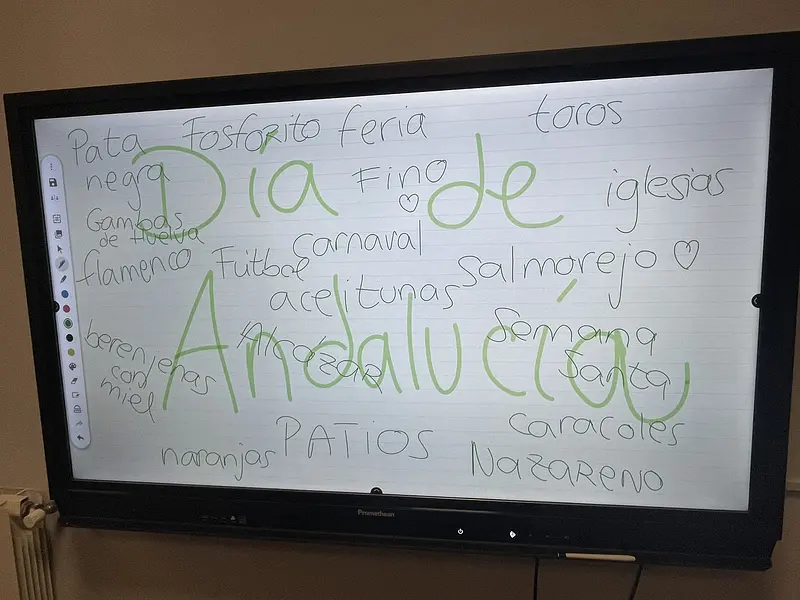 Pata
negra
Fosforito
feria
toros
Día de
Fino
iglesias
Gambas
de Huelva
carnaval
flamenco
Fútbol
Salmorejo
aceitunas
Andalucía
Alcázar
Semana
Santa
berenjenas
con
miel
caracoles
PATIOS
naranjas
NAZARENO
Promethean